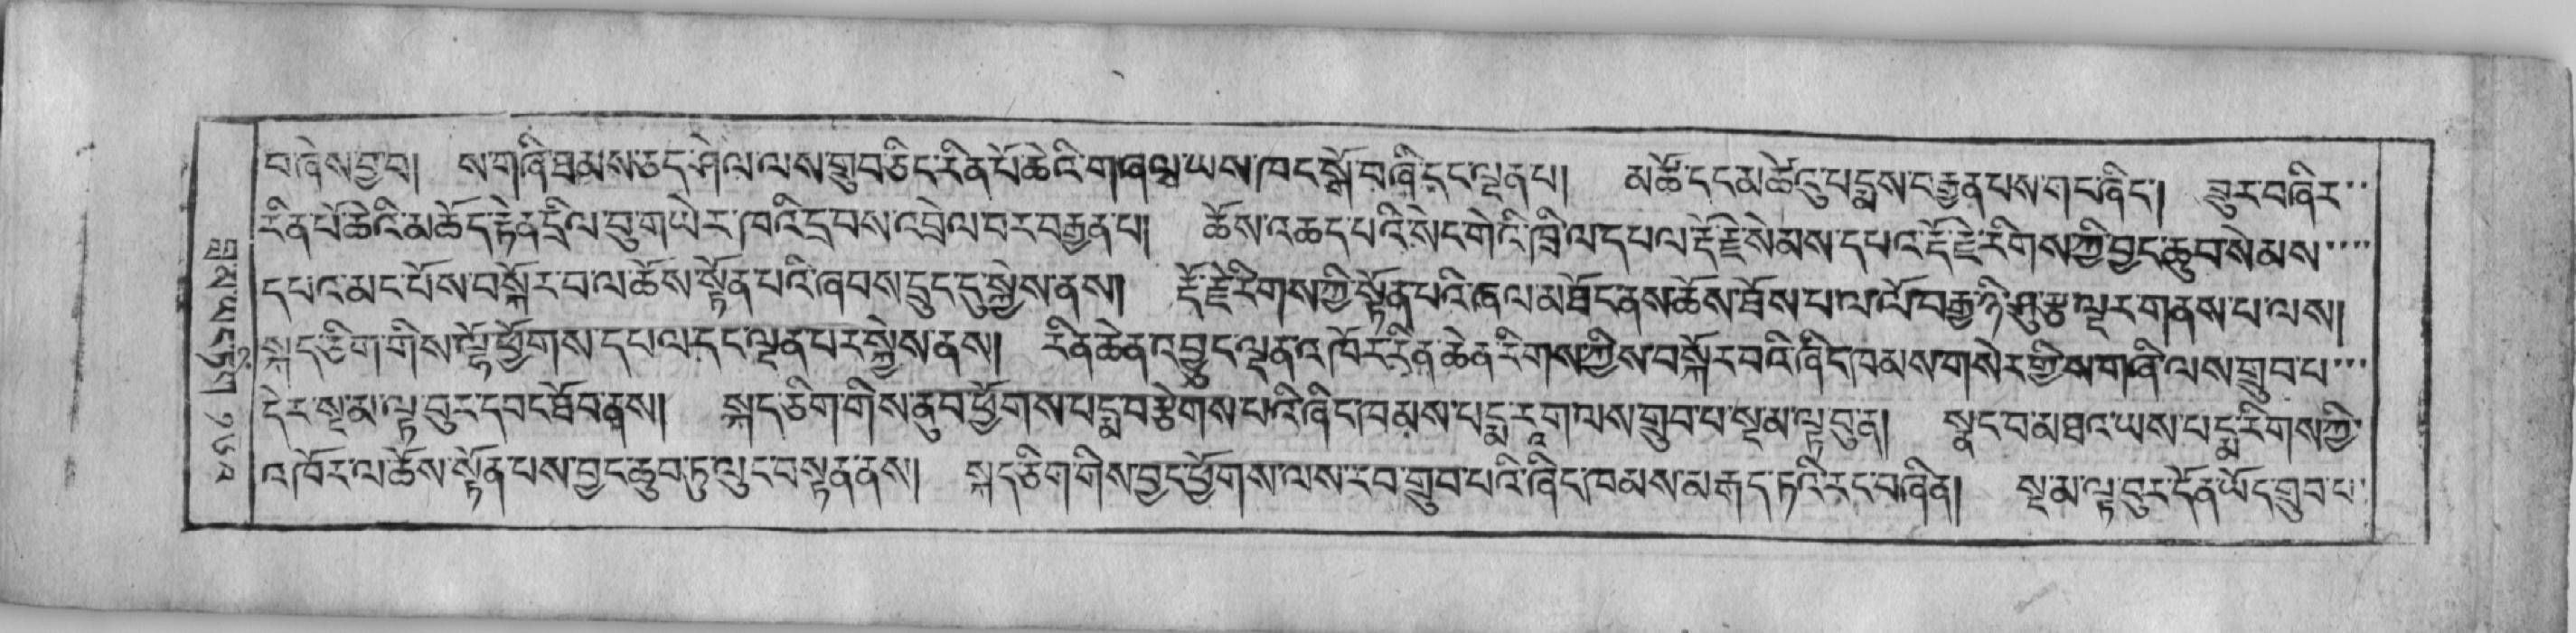 བ་ཞེས་བྱ་བ། ས་གཞི་ཐམས་ཅད་ཤེལ་ལས་གྲུབ་ཅིང་རིན་པོ་ཆེའི་གཞལ་ཡས་ཁང་སྒོ་བཞི་དང་ལྡན་པ། མཚོ་དང་མཚེའུ་པདྨས་བརྒྱན་པས་གང་ཞིང་། ཟུར་བཞིར་
རིན་པོ་ཆེའི་མཆོད་རྟེན་དྲིལ་བུ་གཡེར་ཁའི་དྲ་བས་འབྲེལ་བར་བརྒྱན་པ། ཆོས་འཆད་པའི་སེང་གེའི་ཁྲི་ལ་དཔལ་རྡོ་རྗེ་སེམས་དཔའ་རྡོ་རྗེ་རིགས་ཀྱི་བྱང་ཆུབ་སེམས་
དཔའ་མང་པོས་བསྐོར་བ་ལ་ཆོས་སྟོན་པའི་ཞབས་དྲུང་དུ་སྐྱེས་ནས། རྡོ་རྗེ་རིགས་ཀྱི་སྟོན་པའི་ཞལ་མཐོང་ནས་ཆོས་ཐོས་པ་ལ་ལོ་བརྒྱ་ཉི་ཤུ་རྩ་ལྔར་གནས་པ་ལས།
སྐད་ཅིག་གིས་ལྷོ་ཕྱོགས་དཔལ་དང་ལྡན་པར་སྐྱེས་ནས། རིན་ཆེན་འབྱུང་ལྡན་འཁོར་རིན་ཆེན་རིགས་ཀྱིས་བསྐོར་བའི་ཞིང་ཁམས་གསེར་གྱི་ས་གཞི་ལས་གྲུབ་པ་
དེར་སྔ་མ་ལྟ་བུར་དབང་ཐོབ་ནས། སྐད་ཅིག་གིས་ནུབ་ཕྱོགས་པདྨ་བརྩེགས་པའི་ཞིང་ཁམས་པདྨ་རཱ་ག་ལས་གྲུབ་པ་སྔ་མ་ལྟ་བུར། སྣང་བ་མཐའ་ཡས་པདྨ་རིགས་ཀྱི་
འཁོར་ལ་ཆོས་སྟོན་པས་བྱང་ཆུབ་ཏུ་ལུང་བསྟན་ནས། སྐད་ཅིག་གིས་བྱང་ཕྱོགས་ལས་རབ་གྲུབ་པའི་ཞིང་ཁམས་མ་རྒད་ཏའི་རང་བཞིན། སྔ་མ་ལྟ་བུར་དོན་ཡོད་གྲུབ་པ་